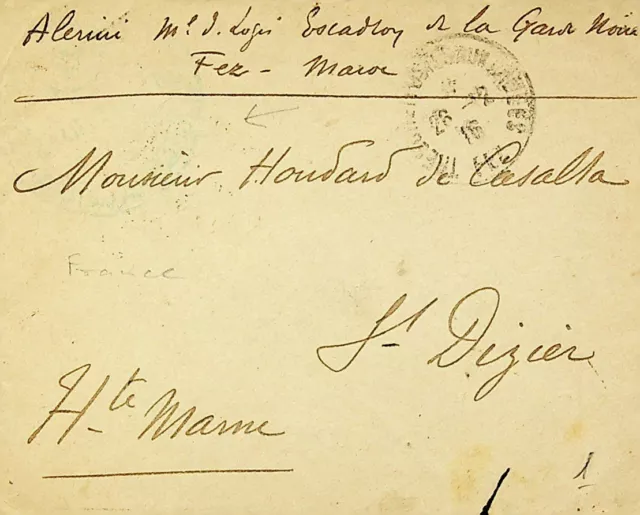 Alerini Ml d. Logis Escadron de la Garde Noire
Fez - Maroc
Monsieur Houdard de Casalta
France
St Dizier
Hte Marne
1